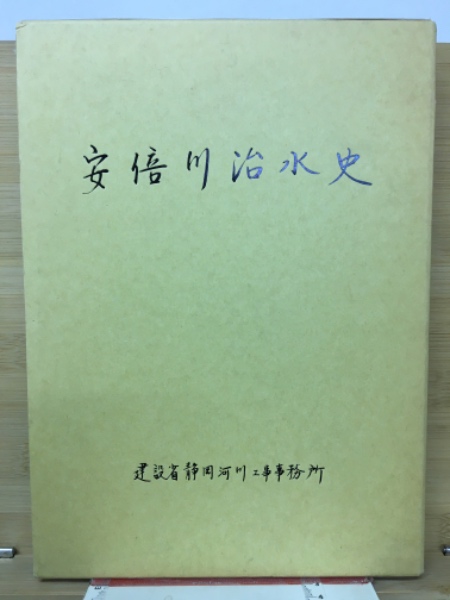 安倍川治水史
建設省静岡河川工事事務所